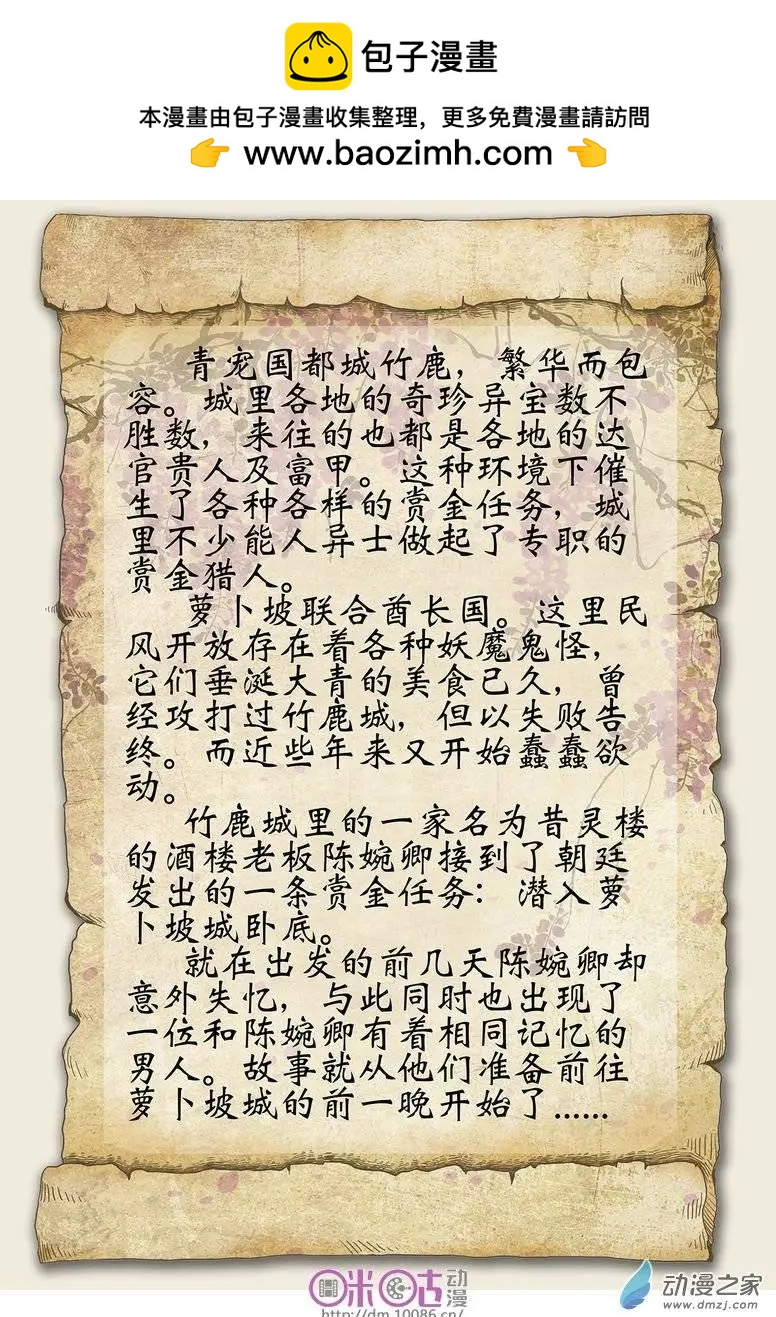 包子漫畫
本漫畫由包子漫畫收集整理，更多免費漫畫請訪問
👉 www.baozimh.com 👈
青宠国都城竹鹿，繁华而包
容。城里各地的奇珍异宝数不
胜数，来往的也都是各地的达
官贵人及富甲。这种环境下催
生了各种各样的赏金任务，城
里不少能人异士做起了专职的
赏金猎人。
萝卜坡联合酋长国。这里民
风开放存在着各种妖魔鬼怪，
它们垂涎大青的美食已久，曾
经攻打过竹鹿城，但以失败告
终。而近些年来又开始蠢蠢欲
动。
竹鹿城里的一家名为昔灵楼
的酒楼老板陈婉卿接到了朝廷
发出的一条赏金任务：潜入萝
卜坡城卧底。
就在出发的前几天陈婉卿却
意外失忆，与此同时也出现了
一位和陈婉卿有着相同记忆的
男人。故事就从他们准备前往
萝卜坡城的前一晚开始了......
咪咕动漫
http://dm.10086.cn/
动漫之家
www.dmzj.com